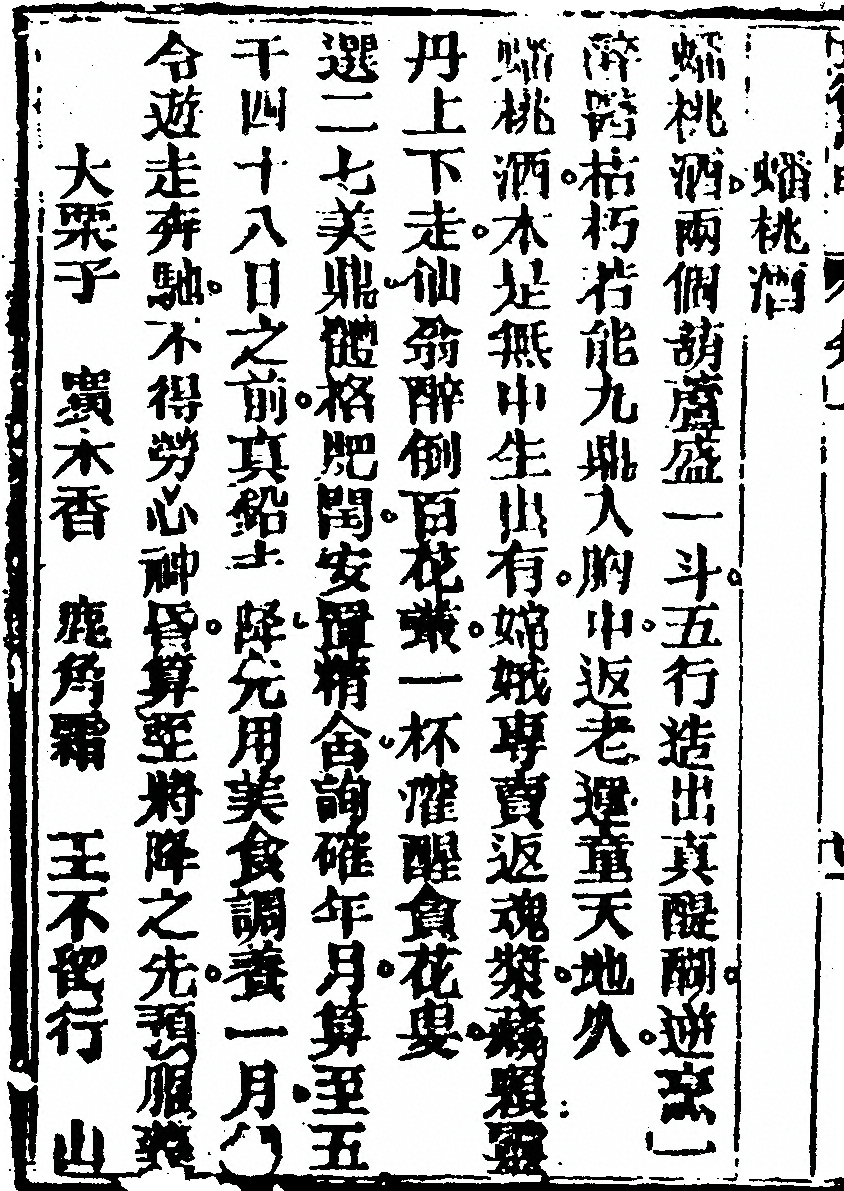 蟠桃酒
蟠桃酒兩個葫蘆盛一斗五行造出真醍醐逆烹一
醉醫枯朽若能九鼎入胸中返老還童天地久
蟠桃酒本是無中生出有嫦娥專賣返魂漿藏頼靈
丹上下走仙翁醉倒百花叢一杯灌醒貪花叟
選二七美鼎體格肥閏安置精舍詢確年月算至五
千四十八日之前真鉛土降先用美食調養一月
令遊走奔馳不得勞心神昏算至將降之先預服藥
大栗子 廣木香 鹿角霜 王不留行 山